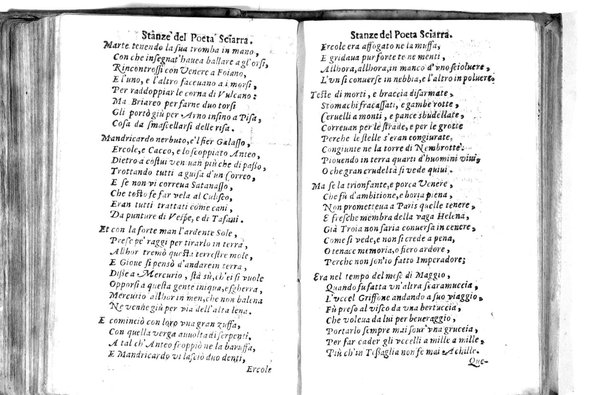 Stanze del Poeta Sciarra.
Marte tenendo la sua tromba in mano,
Con che insegnat'hauea ballare agl'orsi,
Rincontrossi con Venere a Foiano,
E l'uno, e l'altro faceuano a i morsi,
Per raddoppiar le corna di Vulcano:
Ma Briareo per farne duo torsi
Gli portò giù per Arno insino a Pisa,
Cosa da smascellarsi delle risa.
Mandricardo nerbuto, e'l fier Galasso,
Ercole, e Cacco, e lo scoppiato Anteo,
Dietro a costui ven uan più che di passo,
Trottando tutti a guisa d'un Correo,
E se non vi correua Satanasso,
Che tosto fe far vela al Culiseo,
Eran tutti trattati come cani,
Da punture di Vespe, e di Tafani.
Et con la forte man l'ardente Sole,
Prese pe' raggi per tirarlo in terra,
Allhor tremò questa terrestre mole,
E Gioue si pensò d'andare in terra,
Disse a Mercurio, stà sù, ch'ei si vuole
Opporsi a questa gente iniqua, e sgherra,
Mercurio allhor in men, che non balena
Ne venne giù per via dell'alta lena.
E cominciò con loro vna gran zuffa,
Con quella verga auuolta di serpenti,
A tal ch'Anteo scoppiò ne la baruffa,
E Mandricardo vi lasciò duo denti,
Ercole
Stanze del Poeta Sciarra.
Ercole era affogato ne la muffa,
E gridaua pur forte te ne menti,
Allhora, allhora, in manco d'vno scioluere,
L'vn si conuerse in nebbia, e l'altro in poluere.
Teste di morti, e braccia disarmate,
Stomachi fracassati, e gambe rotte,
Ceruelli a monti, e pance sbudellate,
Correuan per le strade, e per le grotte
Perche le stelle s'eran congiurate,
Congiunte ne la torre di Nembrotte.
Piouendo in terra quarti d'huomini viui,
O che gran crudeltà si vede quiui.
Ma se la trionfante, e porca Venere,
Che fù d'ambitione, e boria piena,
Non prometteua a Paris quelle tenere,
E fresche membra della vaga Helena,
Già Troia non saria conuersa in cenere,
Come si vede, e non si crede a pena,
O tenace memoria, o fiero ardore,
Perche non son'io fatto Imperadore;
Era nel tempo del mese di Maggio,
Quando fu fatta vn'altra scaramuccia,
L'vccel Griffone andando a suo viaggio,
Fù preso al visco da vna bertuccia,
Che voleua da lui per beueraggio,
Portarlo sempre mai sour' vna gruccia,
Per far cader gli vccelli a mille, a mille,
Più ch'in Tessaglia non fe mai Achille.
Que-